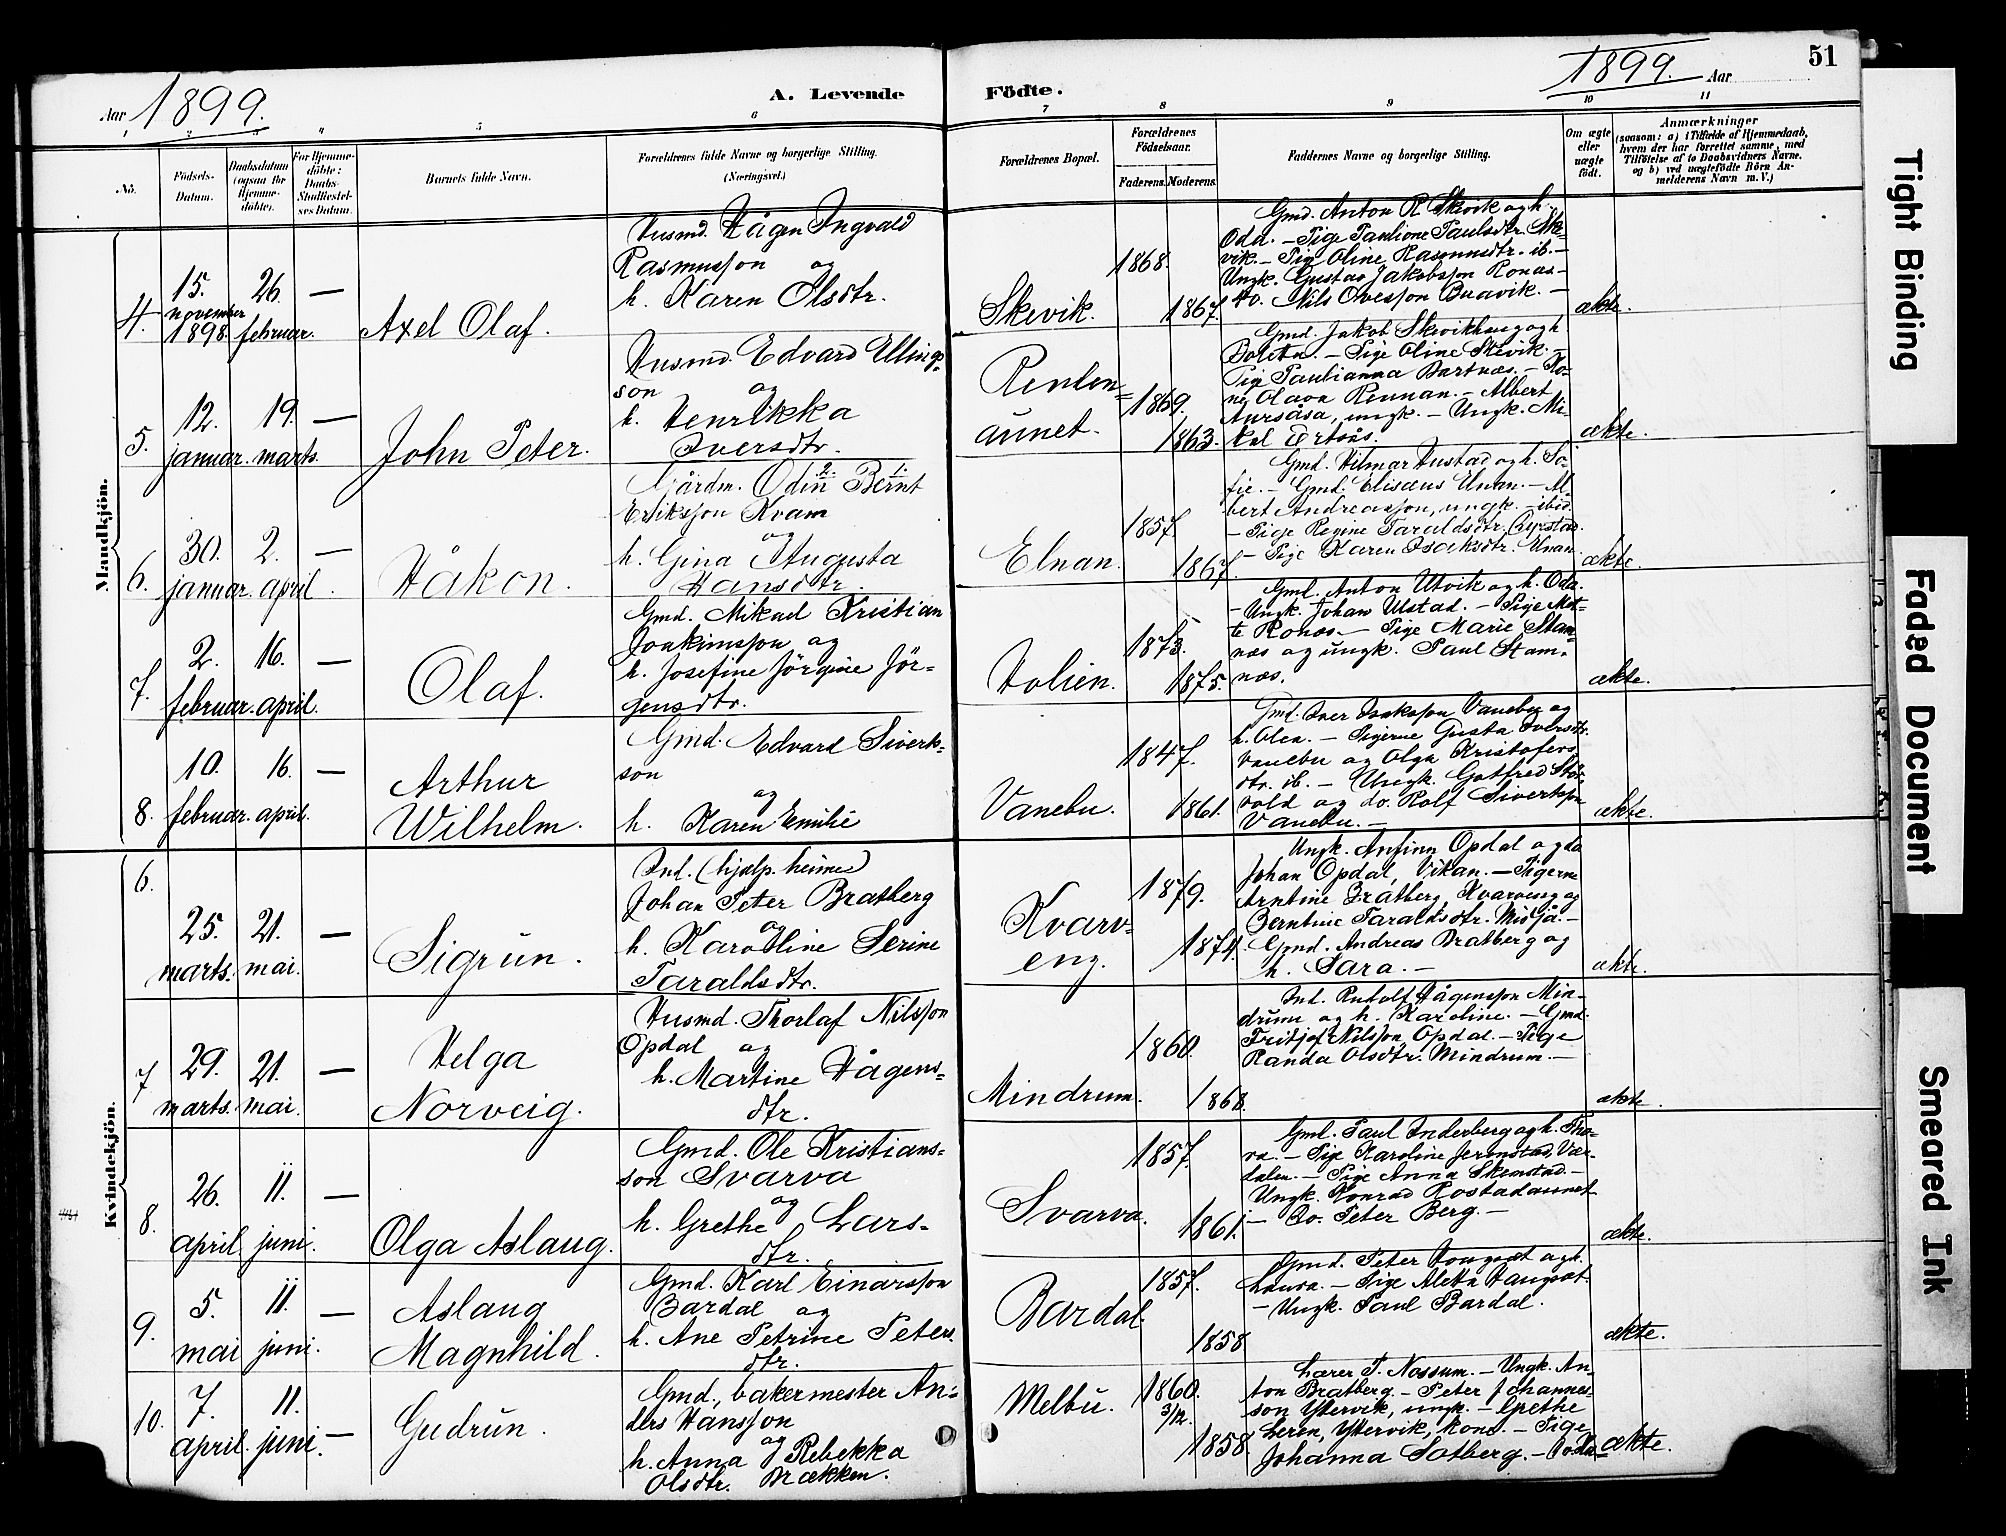 Aar 1899.
A. Levende
Födte.
1899. Aar
51
1 2 3 4 5 6 7 8 9 10 11
No.
Födsels-
Datum.
Daabsdatum
(ogsaa for
Hjemme-
döbte).
For Hjemme-
döbte:
Daabs-
Stadfæstel-
ses Datum.
Barnets fulde Navn.
Forældrenes fulde Navne og borgerlige Stilling.
(Næringsvei.)
Forældrenes Bopæl.
Forældrenes
Födselsaar.
Faderens. Moderens.
Faddernes Navne og borgerlige Stilling.
Om ægte
eller
uægte
födt.
Anmærkninger
(saasom: a) i Tilfælde af Hjemmedaab,
hvem der har forrettet samme, med
Tilföielse af to Daabsvidners Navne.
og b) ved uægtefödte Börn An-
melderens Navn m. V.)
Mandkjön.
4.
15.
november
1898.
26.
februar.
—
Axel Olaf.
Husmd. Hågen Ingvald
Rasmusson og
h. Karen Olsdtr.
Skevik.
1868.
1867.
Gmd. Anton R Skevik og h.
Oda. — Pige Pauline Paulsdtr. Ske-
vik. — Pig Oline Rasmusdtr. ib. —
Ungk. Gustav Jakobsson Ronæs —
do. Nils Ovesson Buavik. —
ækte.
5.
12.
januar.
19.
marts.
—
John Peter.
Husmd. Edvard Ellings-
son og
h. Henrikka
Iversdtr.
Renlen-
aunet.
1869.
1863.
Gmd. Jakob Skevikhaug og h
Boletta. — Pige Oline Skevik. —
Pig Paulianna Bartnæs. — Ko-
ne Olava Rennan. — Albert
Aursåsa, ungk. — Ungk. Mi-
kal Ertsås.
ækte.
6.
30.
januar.
2.
april.
—
Håkon.
Gårdm. Odin 2. Bernt 1.
Eriksson Kvam
og
h. Gina Augusta
Hansdtr
Elnan.
1857.
1867.
Gmd. Hilmar Hustad og h. So-
fie. — Gmd. Elisæus Elnan. — Al-
bert Andreasson, ungk. — ibid.
— Pige Regine Taraldsdtr.
— Pige Karen Isaksdtr. Elnan.
ækte.
7.
2.
februar.
16.
april.
—
Olaf.
Gmd. Mikael Kristian
Joakimsson og
h. Josefine Jörgine Jör-
gensdtr.
Holien.
1873.
1875.
Gmd. Anton Utvik og h. Oda.
— Ungk. Johan Ulstad. — Pige Met-
te Ronæs. — Pige Marie Stam-
næs og ungk. Paul Stam-
næs.
ækte.
8.
10.
februar.
16.
april.
—
Arthur
Wilhelm.
Gmd. Edvard Siverts-
son
og
h. Karen Emilie
Vanebu.
1847.
1861.
Gmd. Iver Isaksson Vanebu og
h. Olea. — Pigerne Gusta Iversdtr.
Vanebu og Olga Kristofers
dtr. ib. — Ungk. Gotfred Stör-
vold og do. Rolf Sivertsson
Vanebu. —
ækte.
Kvindekjön.
6.
25.
marts.
21.
mai.
—
Sigrun.
Ind. (hjælp. heime)
Johan Peter Bratberg
og
h. Karoline Serine
Taraldsdtr.
Kvarv-
eng.
1879.
1874.
Ungk. Anfinn Opdal og do
Johan Opdal, Vikan. — Pigerne
Arntine Bratberg, Kvarveng og
Berntine Taraldsdtr. Midsjå. —
Gmd. Andreas Bratberg og
h. Sara. —
ækte.
7
29.
marts.
21.
mai.
—
Helga
Norveig.
Husmd. Thorlaf Nilsson
Opdal og
h. Martine Hågens-
dtr.
Mindrum.
1860.
1868.
Ind. Rudolf Hågensson Min-
drum og h. Karoline. — Gmd.
Fritjof Nilsson, Opdal. — Pige
Randa Olsdtr. Mindrum. —
ækte.
8.
26.
april
11.
juni.
—
Olga Aslaug.
Gmd. Ole Kristians-
son Svarva
og
h. Grethe Lars-
dtr.
Svarva.
1857.
1861.
Gmd. Paul Inderberg og h. Tho-
ra. — Pige Karoline Jermstad, Vær-
dalen. — Pige Anna Skenstad. —
Ungk. Konrad Rostadaunet
— Do. Peter Berg. —
ækte.
9.
5.
mai
11.
juni.
—
Aslaug
Magnhild.
Gmd. Karl Einarsson
Bardal og
h. Ane Petrine Peters
dtr.
Bardal.
1857.
1858
Gmd. Peter Haugsæt og h.
Laura. — Pige Aletta Haugsæt.
— Ungk. Paul Bardal.
ækte.
10.
7.
april.
11.
juni.
—
Gudrun.
Gmd., bakermester An-
ders Hansson
og
h. Anna Rebekka
Olsdtr. Brækken.
Melbu.
1860.
3/12.
1858.
Lærer P. Nossum. — Ungk. An-
ton Bratberg. — Peter Johannes-
son Ytervik, ungk. — Grethe
Leren, Ytervik, kone. — Pige
Johanna Solberg. —
ækte.
Tight Binding
Faded Document
Smeared Ink